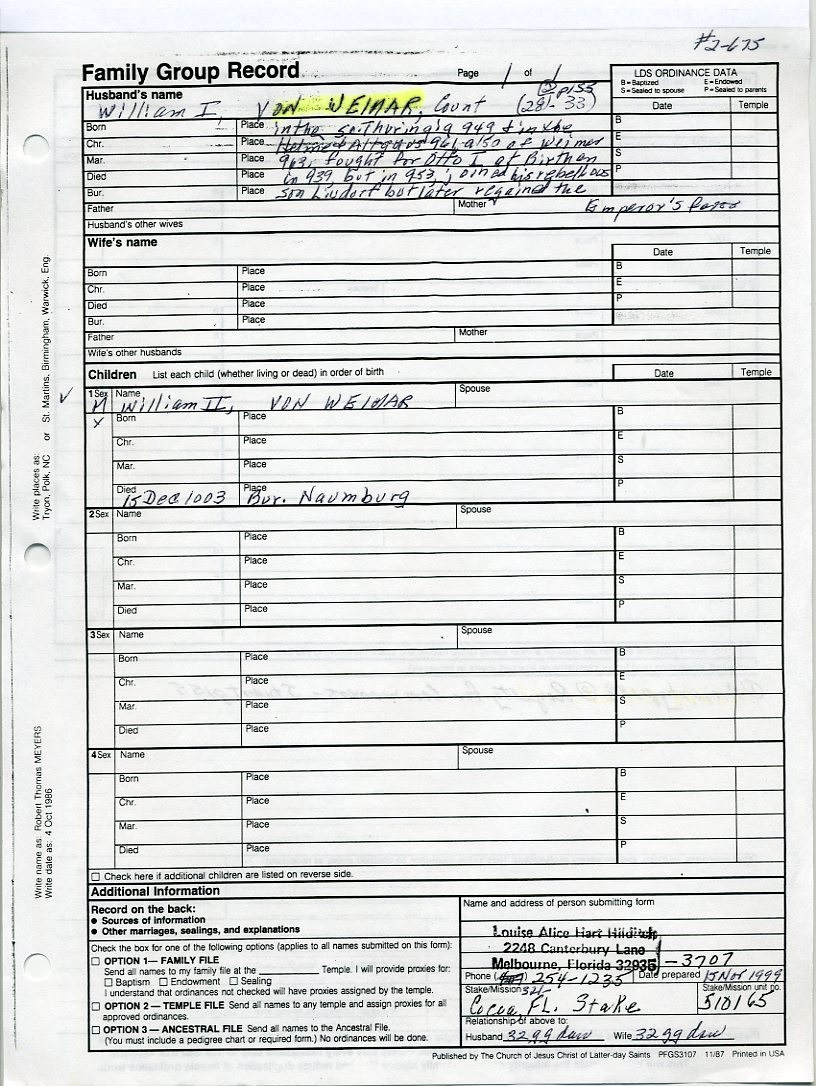 #2-675
Family Group Record
Page 1 of 1
LDS ORDINANCE DATA
B = Baptized E = Endowed
S = Sealed to spouse P = Sealed to parents
Husband's name
William I, VON WEIMAR, Count (28)-33) p155
Date Temple
Born Place in the so. Thuringia 949 & in the B
Chr. Place Helmred Altgau 961, also of Weimer E
Mar. Place 963, fought for Otto I at Birthen S
Died Place in 939 but in 953, joined his rebellious P
Bur. Place son Liudorf but later regained the
Father Mother Emperor's
Husband's other wives
Wife's name
Date Temple
Born Place B
Chr. Place E
Died Place P
Bur. Place
Father Mother
Wife's other husbands
Children List each child (whether living or dead) in order of birth Date Temple
1 Sex Name Spouse
M William II, VON WEIMAR
X Born Place B
Chr. Place E
Mar. Place S
Died Place P
15 Dec 1003 Bur. Naumburg
2 Sex Name Spouse
Born Place B
Chr. Place E
Mar. Place S
Died Place P
3 Sex Name Spouse
Born Place B
Chr. Place E
Mar. Place S
Died Place P
4 Sex Name Spouse
Born Place B
Chr. Place E
Mar. Place S
Died Place P
Check here if additional children are listed on reverse side.
Additional Information
Record on the back:
• Sources of information
• Other marriages, sealings, and explanations
Check the box for one of the following options (applies to all names submitted on this form):
OPTION 1— FAMILY FILE
Send all names to my family file at the ____________ Temple. I will provide proxies for:
Baptism Endowment Sealing
I understand that ordinances not checked will have proxies assigned by the temple.
OPTION 2 — TEMPLE FILE Send all names to any temple and assign proxies for all
approved ordinances.
OPTION 3 — ANCESTRAL FILE Send all names to the Ancestral File.
(You must include a pedigree chart or required form.) No ordinances will be done.
Name and address of person submitting form
Louise Alice Hart Hilditch
2248 Canterbury Lane
Melbourne, Florida 32935-3707
Phone ( ) 254-1235 Date prepared 15 Nov 1999
Stake/Mission 321- Stake/Mission unit no.
Cocoa, FL. Stake 510165
Relationship of above to:
Husband 32 gg dau Wife 32 gg dau
Published by The Church of Jesus Christ of Latter-day Saints PFGS3107 11/87 Printed in USA
Write places as: Tryon, Polk, NC or St. Martins, Birmingham, Warwick, Eng.
Write name as: Robert Thomas MEYERS
Write date as: 4 Oct 1986